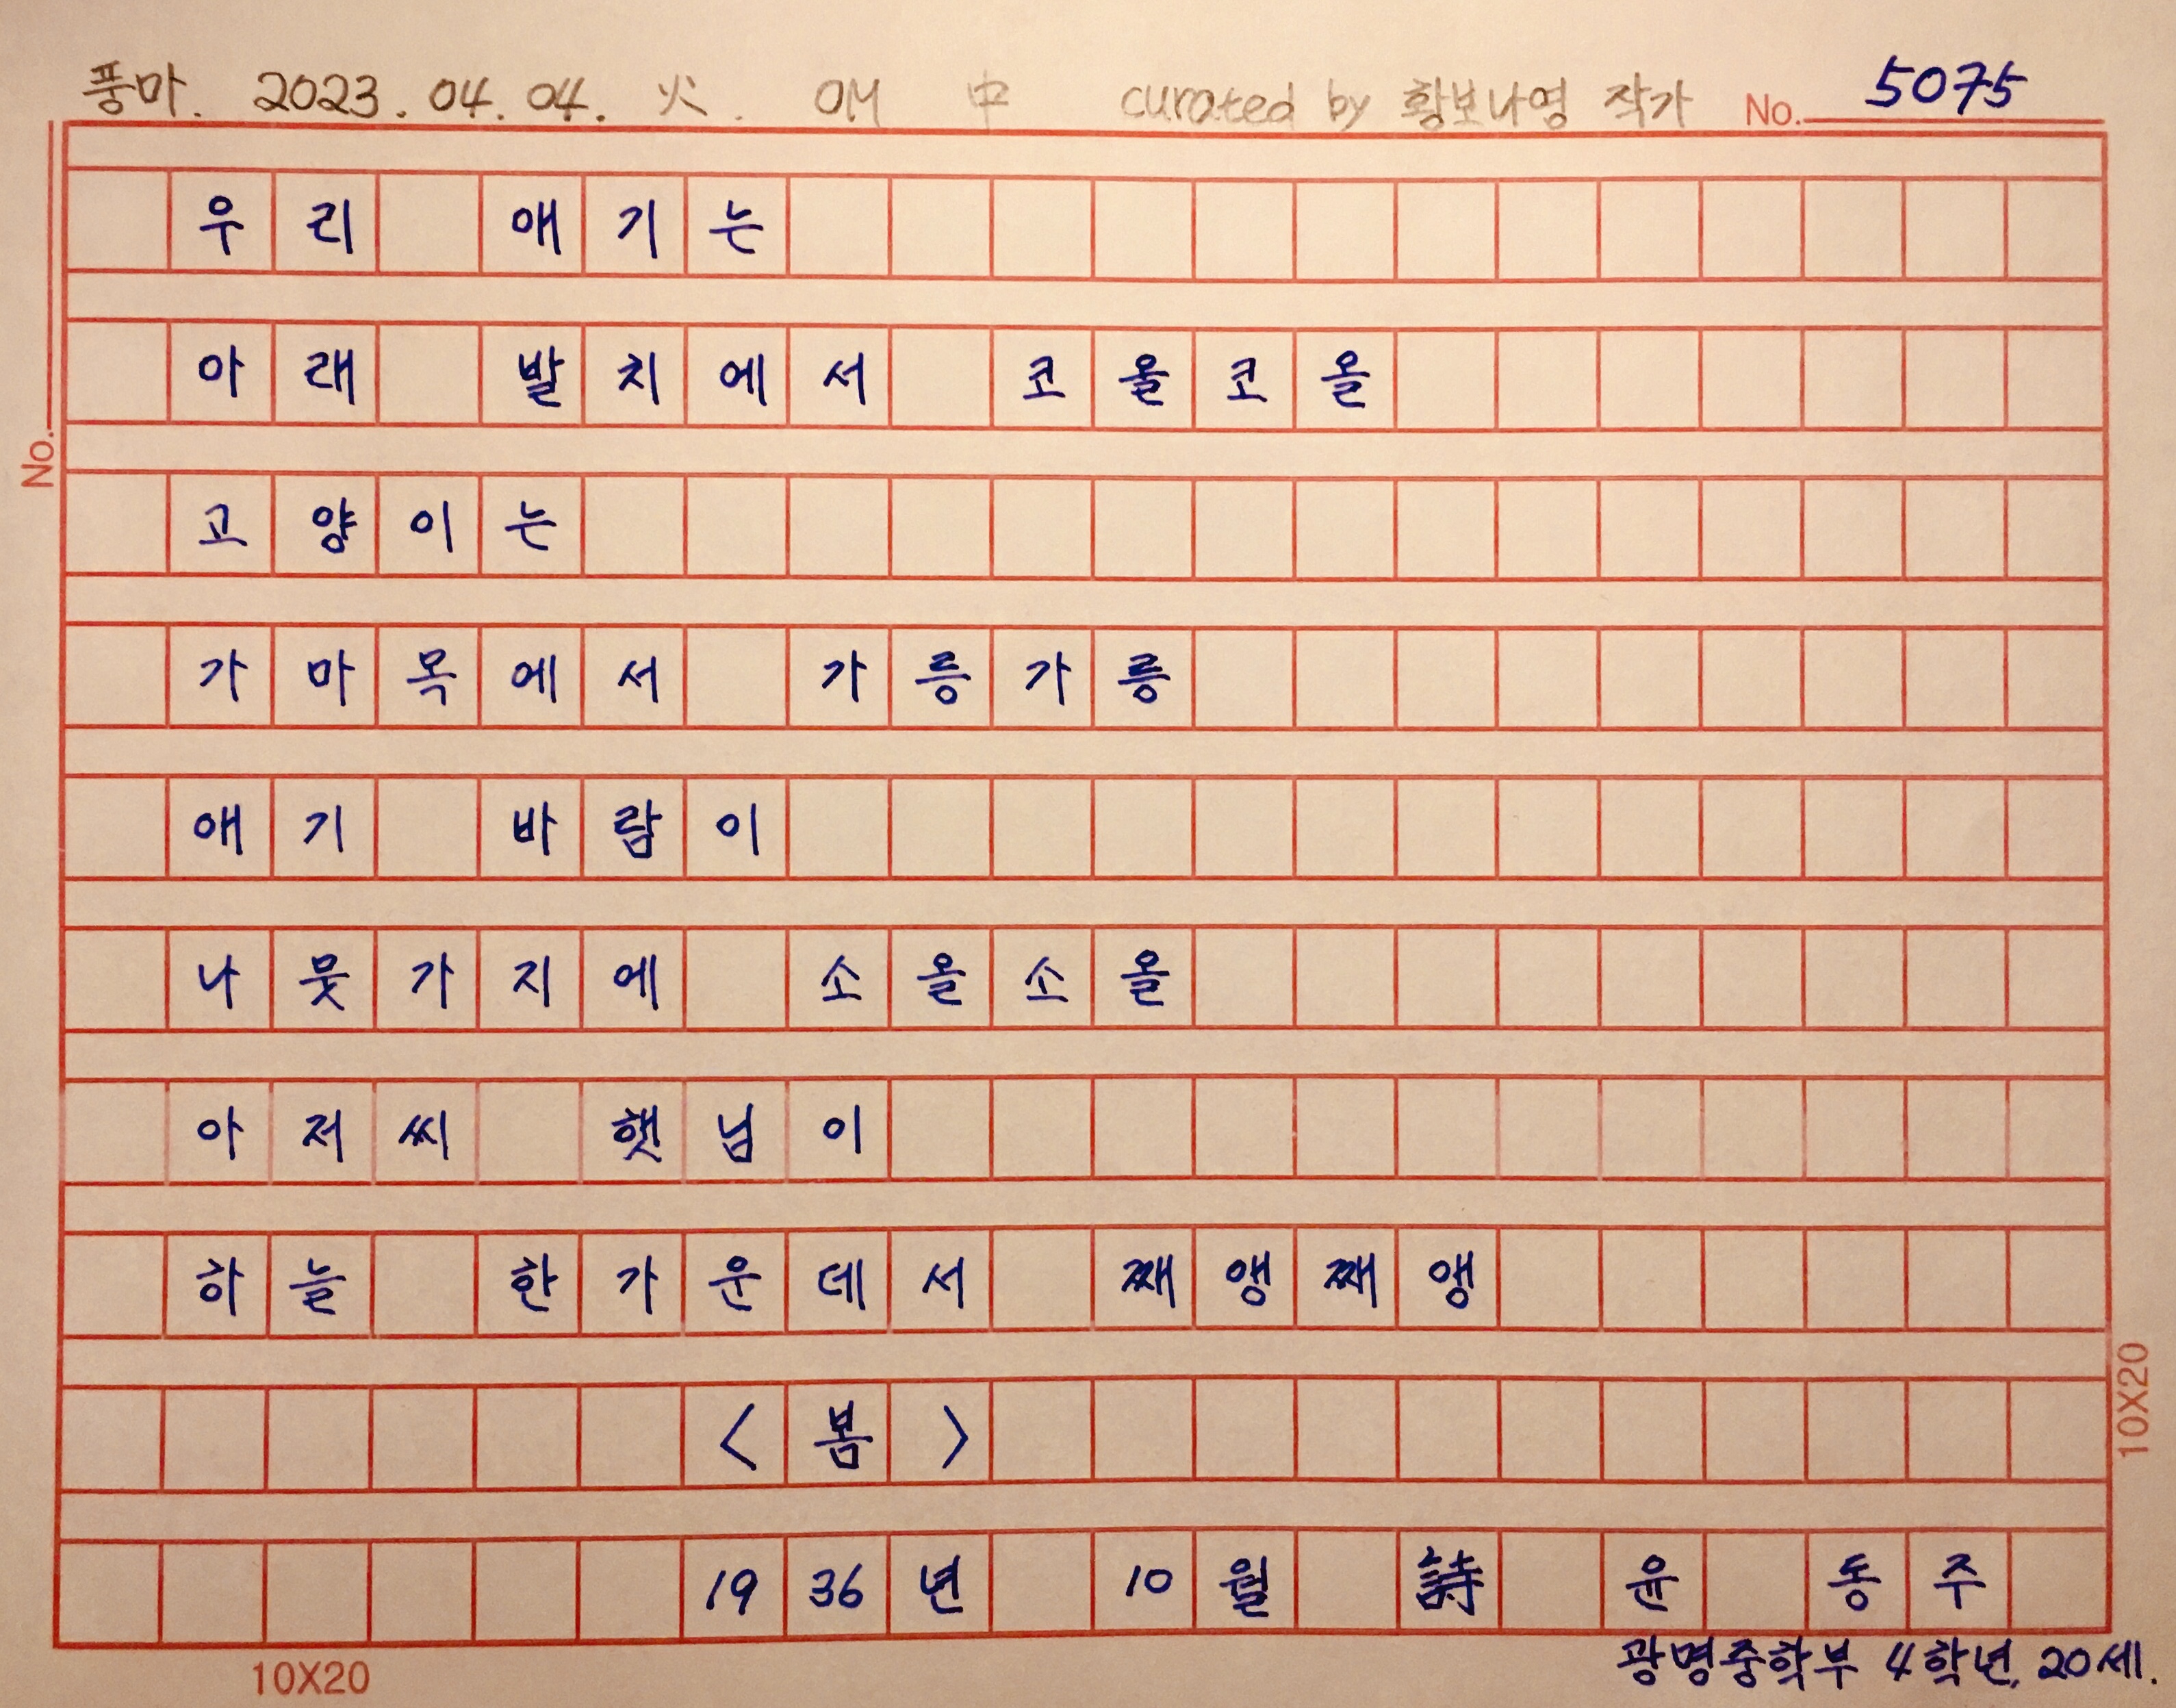 풍마. 2023. 04. 04. 火. OM 中 curated by 황보나영 작가 No. 5075
우리 애기는
아래 발치에서 코올코올
고양이는
가마목에서 가릉가릉
애기 바람이
나뭇가지에 소올소올
아저씨 햇님이
하늘 한가운데서 째앵째앵
<봄>
1936년 10월 詩 윤 동주
광명중학부 4학년, 20세.
No.
10X20
10X20